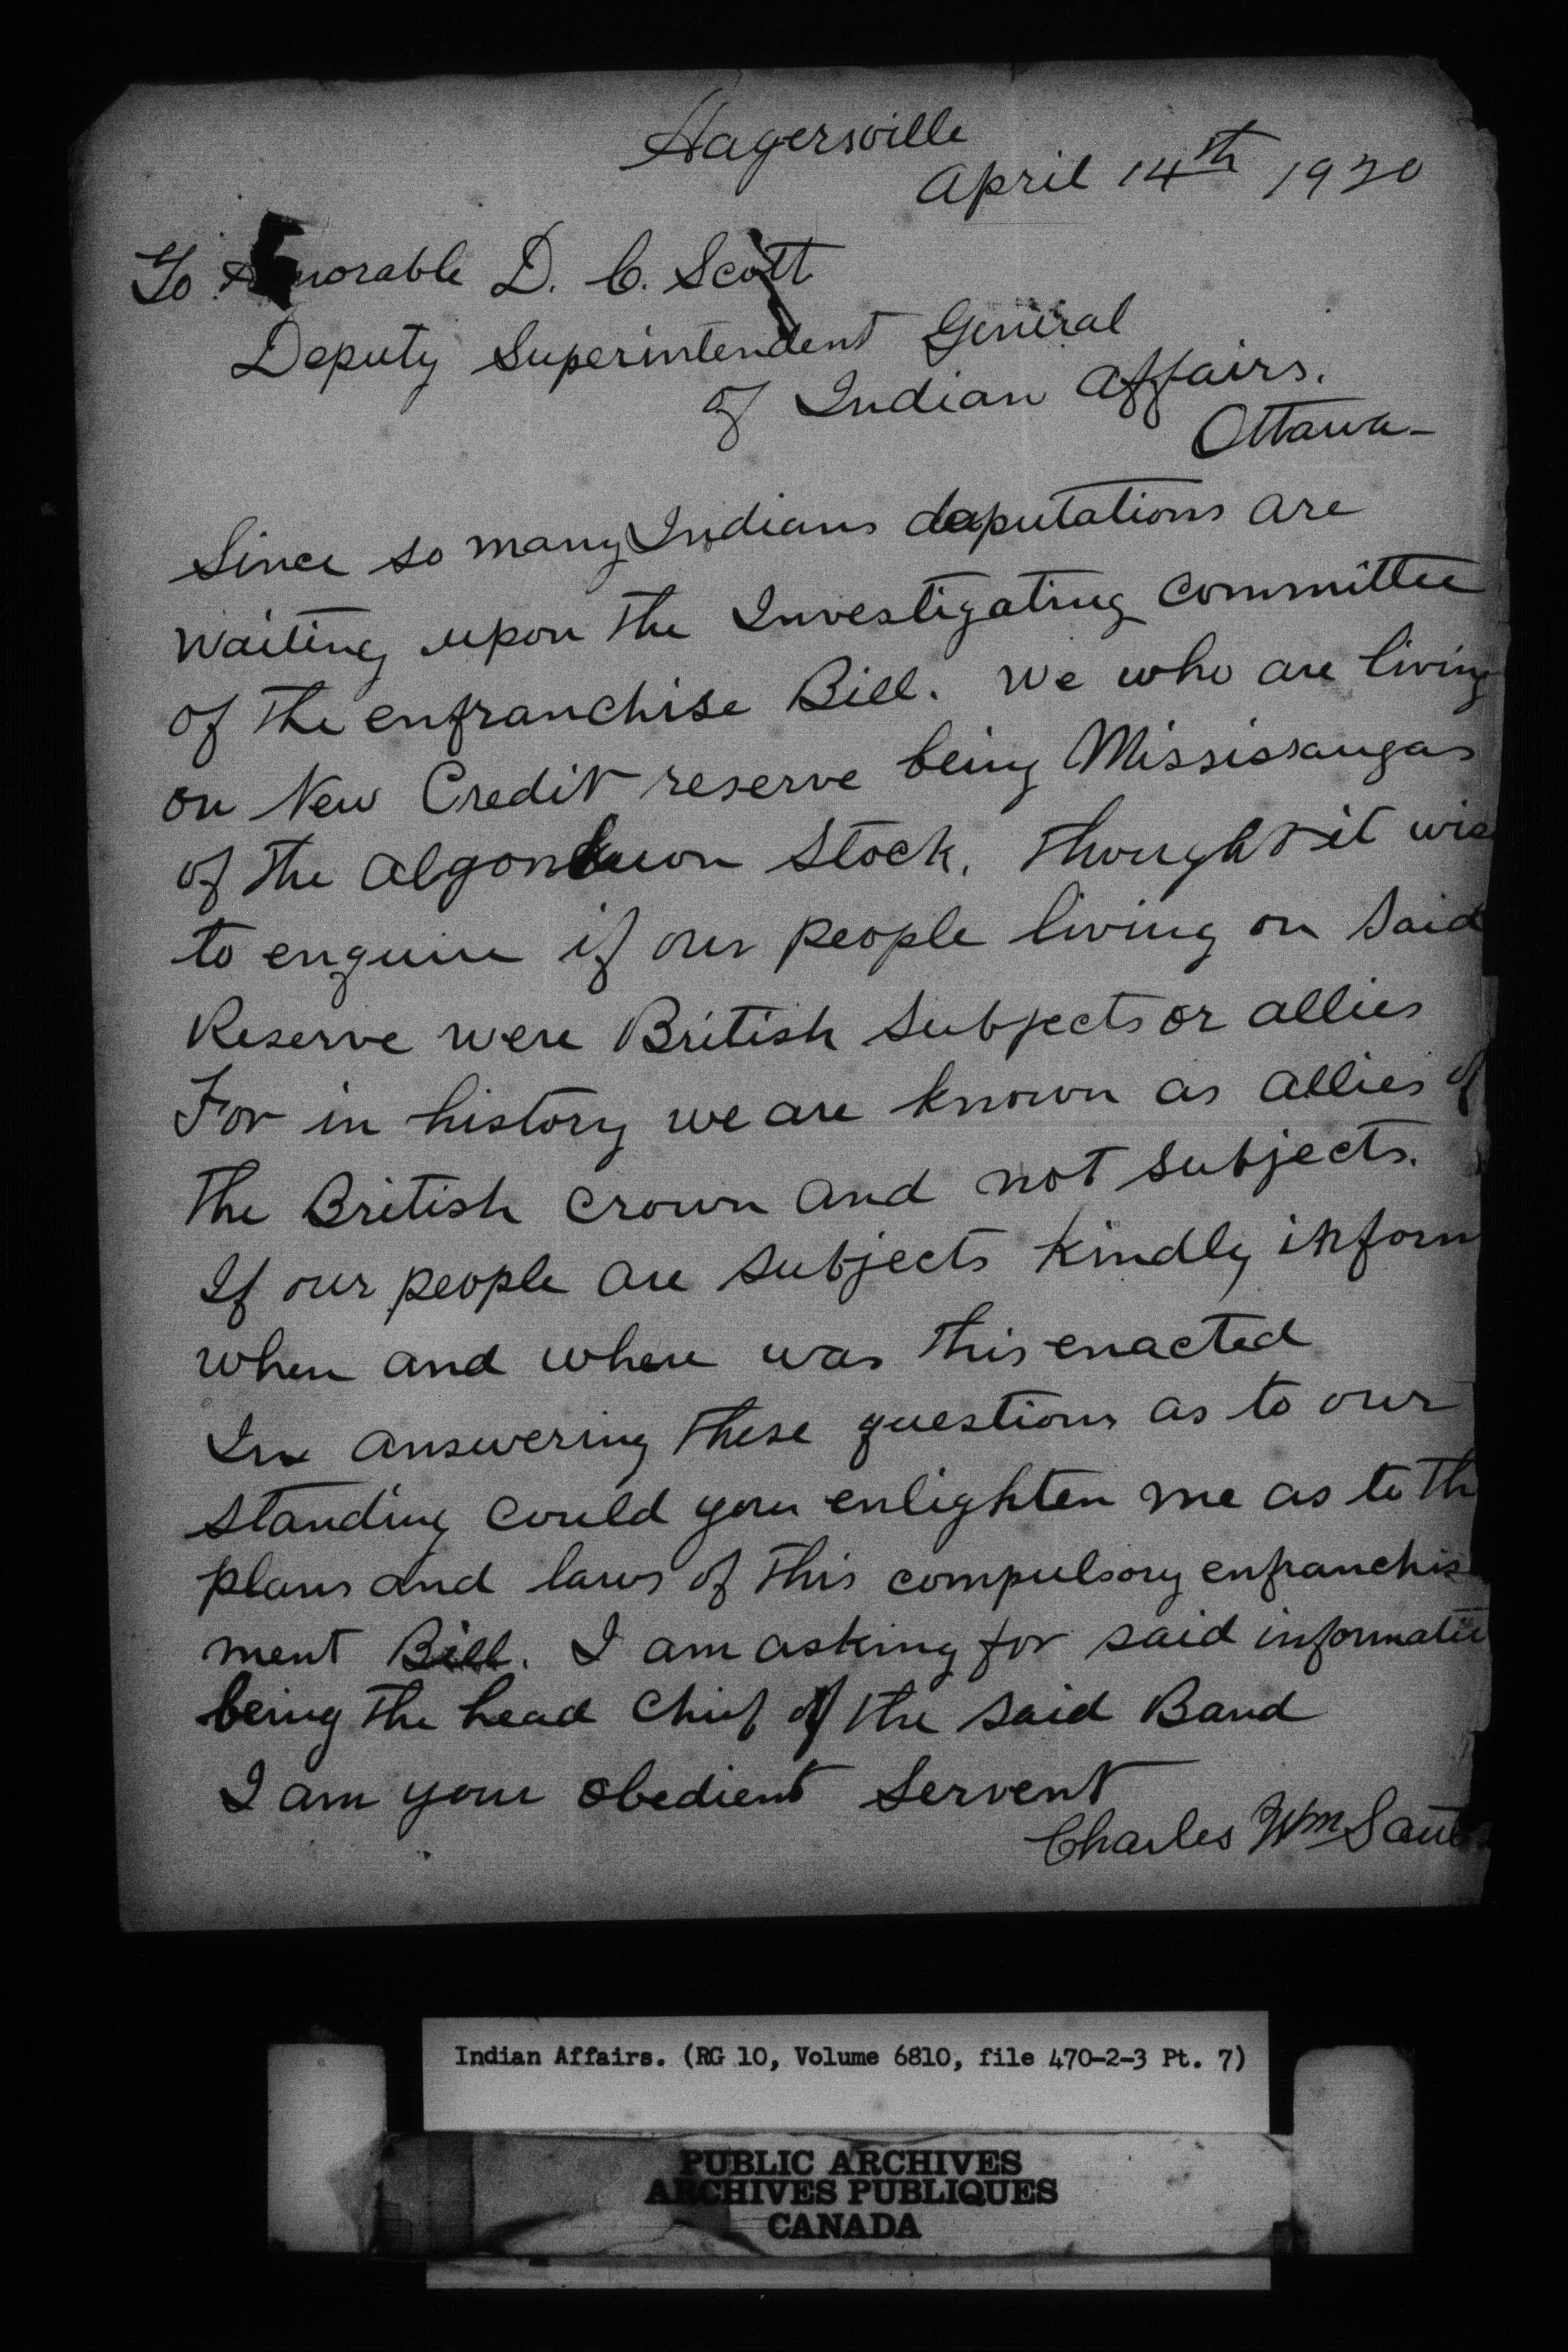 Hagersville
April 14th 1920
To Honorable D. C. Scott
Deputy Superintendent General
of Indian Affairs.
Ottawa-
Since so many Indians deputations are
waiting upon the Investigating Committee
of the enfranchise Bill. We who are living
on New Credit reserve being Mississaugas
of the algonkuon Stock. thought it wis
to enquire if our people living on said
Reserve were British Subjects or allies
For in history we are known as allies of
the British crown and not subjects.
If our people are subjects kindly inform
when and where was this enacted
In answering these questions as to our
standing could you enlighten me as to th
plans and laws of this compulsory enfranchis
ment Bill. I am asking for said informati
being the head Chief of the said Band
I am your obedient Servent
Charles Wm
Indian Affairs. (RG 10, Volume 6810, file 470-2-3 Pt. 7)
PUBLIC ARCHIVES
ARCHIVES PUBLIQUES
CANADA